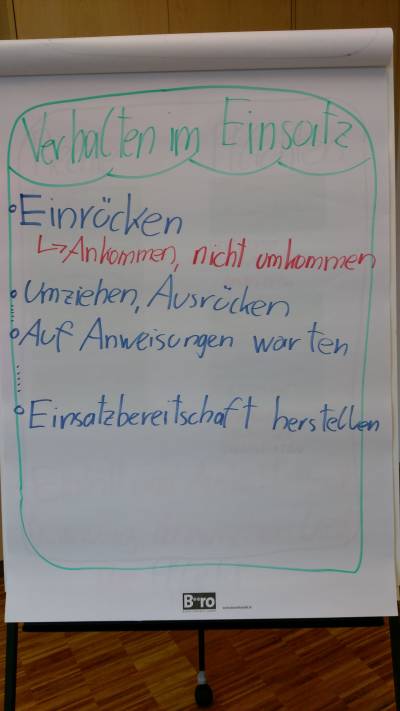 Verhalten im Einsatz
Einrücken
↳ Ankommen, nicht umkommen
Umziehen, Ausrücken
Auf Anweisungen warten
Einsatzbereitschaft herstellen
B**ro